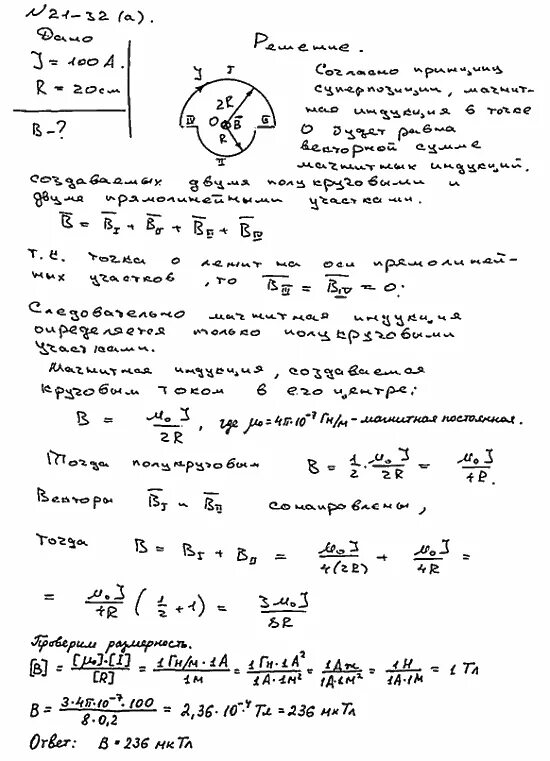 N21-32 (а).
Дано
J = 100 А.
R = 20см
B-?
Решение.
J I
2R
IV O B III
R
II
Согласно принципу
суперпозиции, магнит-
ная индукция в точке
O будет равна
векторной сумме
магнитных индукций,
создаваемых двумя полукруговыми и
двумя прямолинейными участками.
B̅ = B̅_I + B̅_II + B̅_III + B̅_IV
Т.к. точка O лежит на оси прямолиней-
ных участков, то B̅_III = B̅_IV = 0;
Следовательно магнитная индукция
определяется только полукруговыми
участками.
Магнитная индукция, создаваемая
круговым током в его центре:
B = μ₀J/2R, где μ₀=4π·10⁻⁷ Гн/м - магнитная постоянная.
Тогда полукруговым B = 1/2 · μ₀J/2R = μ₀J/4R.
Векторы B̅_I и B̅_II сонаправлены,
тогда B = B_I + B_II = μ₀J/4(2R) + μ₀J/4R =
= μ₀J/4R (1/2 + 1) = 3μ₀J/8R
Проверим размерность.
[B] = [μ₀]·[I]/[R] = 1Гн/м·1А/1м = 1Гн·1А²/1А·1м² = 1Дж/1А·1м² = 1Н/1А·1м = 1 Тл
B = 3·4π·10⁻⁷·100/8·0,2 = 2,36·10⁻⁴ Тл = 236 мкТл
Ответ: B = 236 мкТл